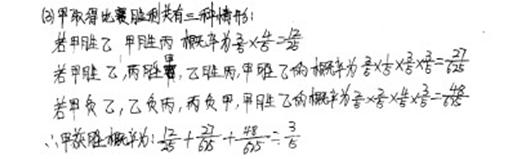 (3)甲取得比赛胜利共有三种情形:
若甲胜乙 甲胜丙 概率为3/5×4/5=12/25
若甲胜乙,丙胜甲,乙胜丙,甲胜乙的概率为3/5×1/5×3/5×3/5=27/625
若甲负乙,乙负丙,丙负甲,甲胜乙的概率为2/5×2/5×4/5×3/5=48/625
∴甲获胜概率为:12/25+27/625+48/625=3/5